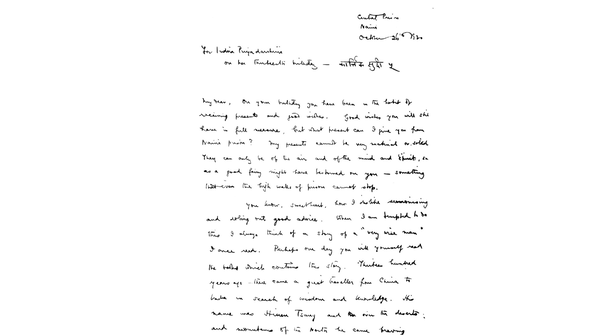 Central Prison
Naini
October 26th 1930
For Indira Priyadarshini
on her thirteenth birthday —
My dear, On your birthday you have been in the habit of
receiving presents and good wishes. Good wishes you will still
have in full measure, but what present can I give you from
Naini prison? My presents cannot be very material or solid
They can only be of the air and of the mind and spirit, such
as a good fairy might have bestowed on you — something
that even the high walls of prison cannot stop.
You know, sweetheart, how I dislike sermonising
and doling out good advice. When I am tempted to do
this I always think of a story of a "very wise man"
I once read. Perhaps one day you will yourself read
the book which contains this story. Thirteen hundred
years ago there came a great traveller from China to
India in search of wisdom and knowledge. His
name was Hiuen Tsang and over the deserts
and mountains of the North he came braving